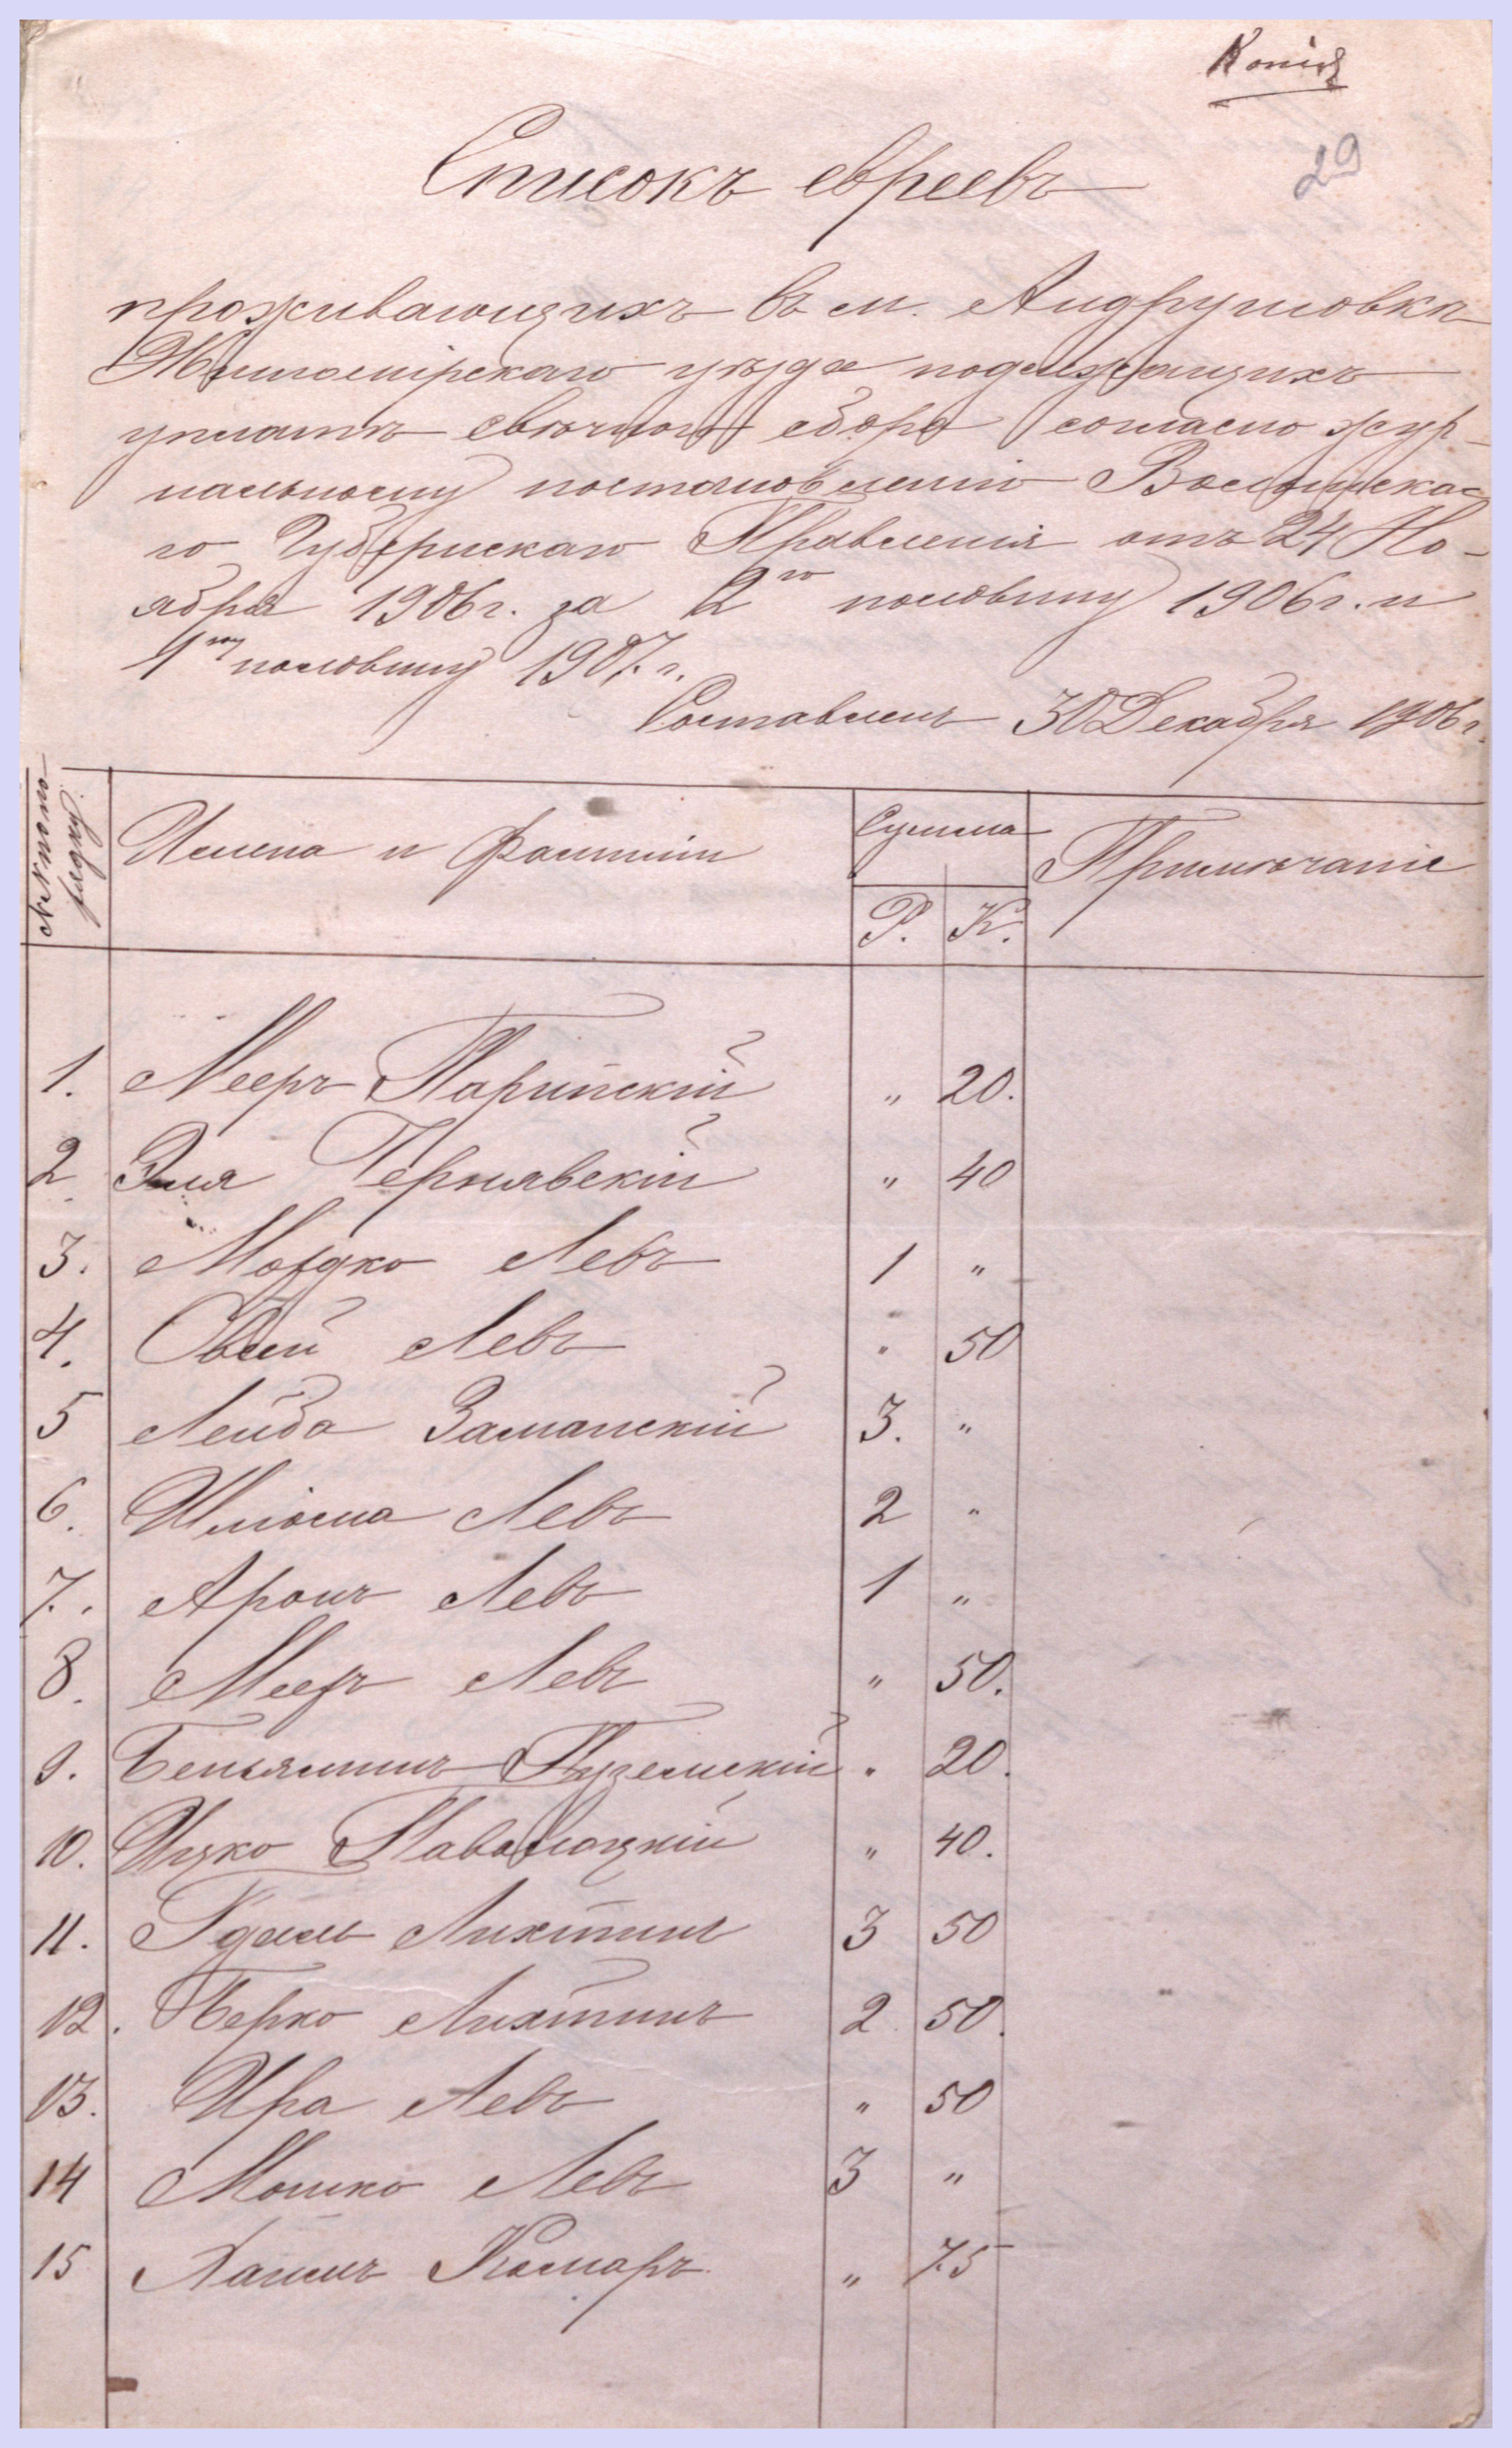 Копія
29
Списокъ евреевъ
проживающихъ въ м. Андрушовкѣ
Житомірскаго уѣзда подлежащихъ
уплатѣ свѣчного сбора согласно жур-
нальному постановленію Волынска-
го Губернскаго Правленія отъ 24 Но-
ября 1906 г. за 2ю половину 1906 г. и
1ую половину 1907 г.
Составленъ 30 Декабря 1906 г.
№№ по по-
рядку.
Имена и фамиліи
Сумма
Примѣчаніе
Р. К.
1. Мееръ Парийскій " 20.
2. Эля Чернявскій " 40
3. Мордко Левъ 1 "
4. Овсей Левъ " 50
5 Лейба Заманскій 3. "
6. Шліома Левъ 2 "
7. Аронъ Левъ 1 "
8. Меер Левъ " 50.
9. Беньяминъ " 20.
10. Ицко Паволоцкій " 40.
11. Лихтинъ 3 50
12. Берко Лихтинъ 2 50.
13. Ира Левъ " 50
14 Мошко Левъ 3 "
15 Хаимъ Комаръ. " 75